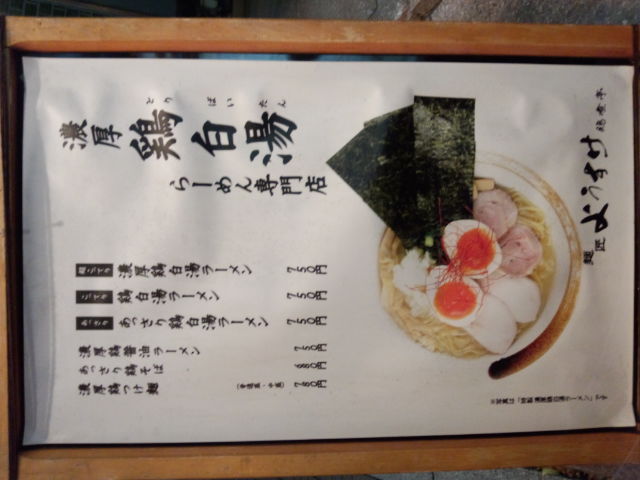 濃厚
とり ぱい たん
鶏白湯
らーめん専門店
超こてり 濃厚鶏白湯ラーメン 750円
こてり 鶏白湯ラーメン 750円
あっさり あっさり鶏白湯ラーメン 750円
濃厚鶏醤油ラーメン 750円
あっさり鶏そば 680円
濃厚鶏つけ麺 780円
麺匠
ようすけ